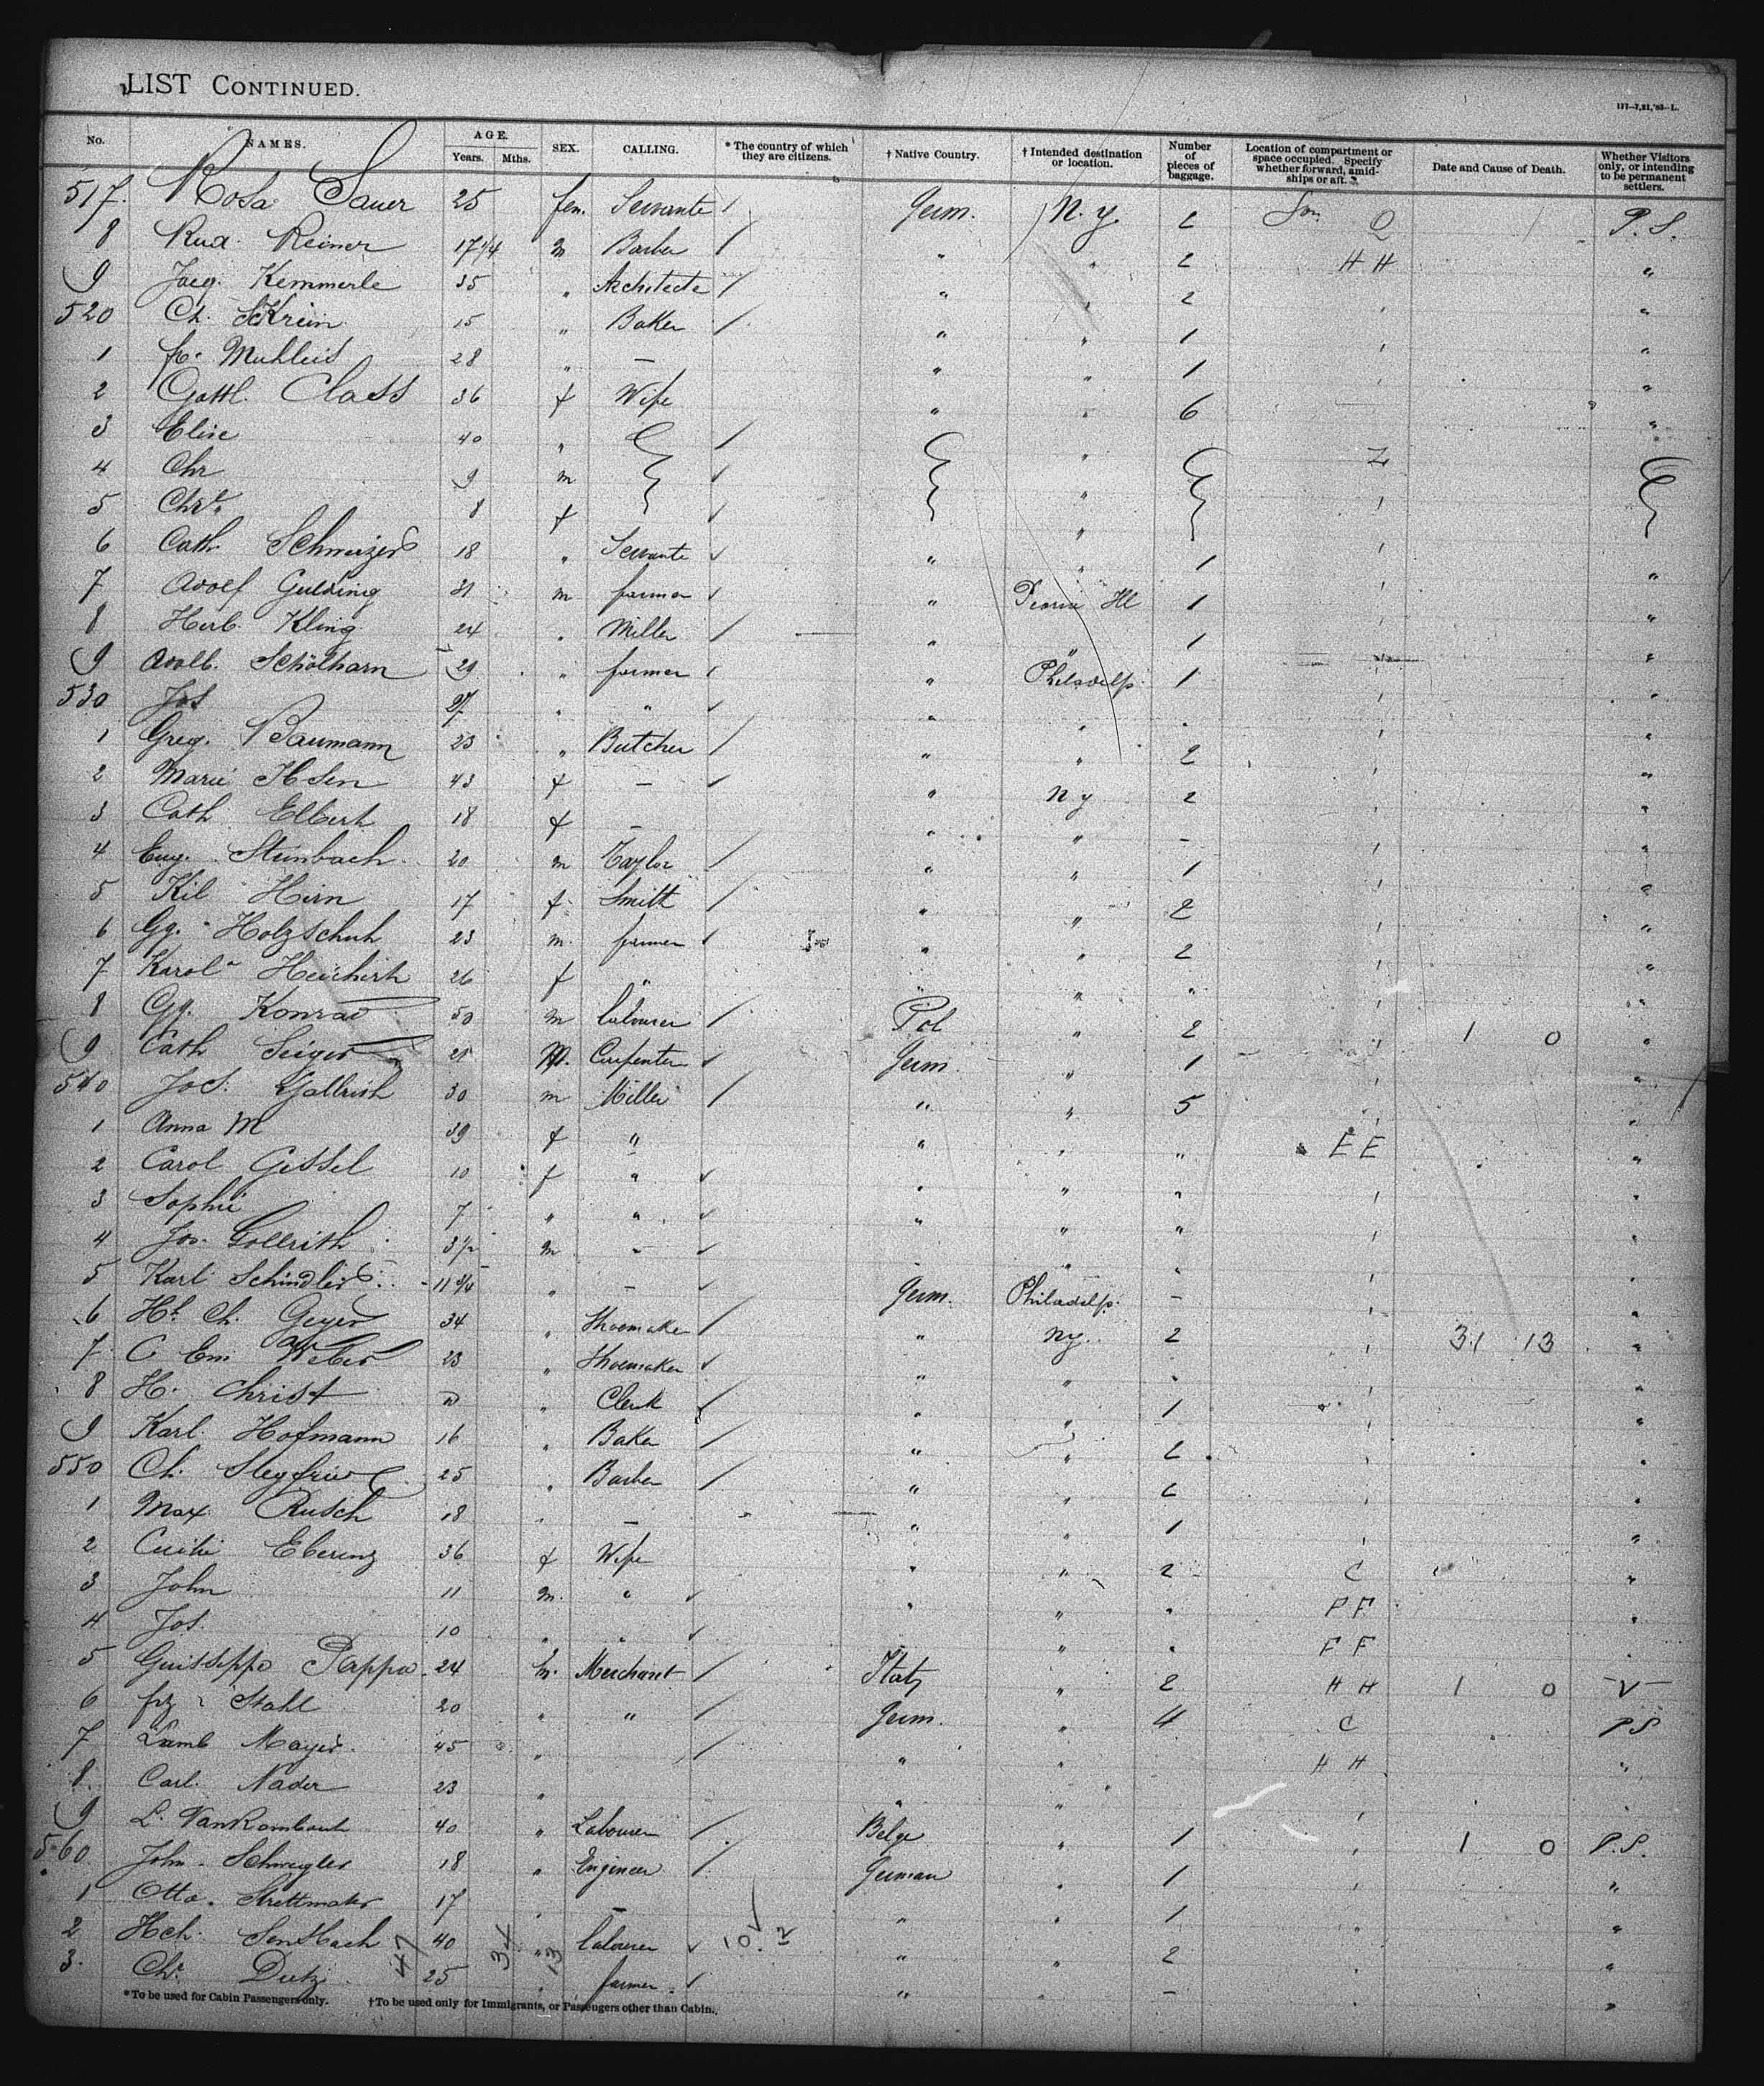 LIST CONTINUED.
177—7,21,'83—L.
No. NAMES. AGE. Years. Mths. SEX. CALLING. * The country of which they are citizens. † Native Country. † Intended destination or location. Number of pieces of baggage. Location of compartment or space occupied. Specify whether forward, amidships or aft. Date and Cause of Death. Whether Visitors only, or intending to be permanent settlers.
517. Rosa Sauer 25 fem. Servante / Germ. N. Y. 2 Q P. S.
8 Rud. Reiner 17 1/4 m Barber / " " 2 H H "
9 Jaeg. Kemmerle 35 " Architecte / " " 2 "
520 Ch. 15 " Baker / " " 1 "
1 Fr. Muhleis 28 " — " " 1 "
2 Gottl. Class 36 f Wife " " 6 "
3 Elise 40 " / " Z
4 Chr 9 m ✓ "
5 Chr. 8 f ✓ "
6 Cath. Schweizer 18 " Servante ✓ " " 1 "
7 Adolf Gulding 31 m farmer ✓ " Peoria Ill 1 "
8 Herb. Kling 24 " Miller / " " 1 "
9 Adolb. Schölharn 29 " farmer / " Philadelp. 1 "
530 Jos 27 " " ✓ " " "
1 Greg. Baumann 23 " Butcher / " " 2 "
2 Marie 43 f — ✓ " N Y 2 "
3 Cath Elbert 18 f — " " — "
4 Eug. Steinbach 20 m Taylor / " " 1 "
5 Kil Hirn 17 f Smith / " " 2 "
6 Gg. Holzschuh 23 m. farmer ✓ " " 2 "
7 Karol. 26 f " " " "
8 Gg. Konrad 50 m Labourer / Pol " 2 1 0 "
9 Cath Seiger 21 m. Carpenter ✓ Germ. " 1 "
540 Jos. 30 m Miller / " " 5 "
1 Anna M 39 f " " " " E E "
2 Carol Gessel 10 f " ✓ " " " "
3 Sophie 7 " " ✓ " " " "
4 Jos. Gollrith 3 1/2 m — ✓ " " "
5 Karl Schindler 11 3/4 " — ✓ Germ. Philadelp. — "
6 Hh. Ch. Geyer 34 " Shoemaker / " NY. 2 31 13 "
7 C Em Weber 23 " Shoemaker ✓ " " " "
8 H. Christ " Clerk / " " 1 "
9 Karl. Hofmann 16 " Baker / " " 2 "
550 Ch. Siegfried 25 " Barber / " " 2 "
1 Max Rusch 18 " — " " 1 "
2 Eberenz 36 f Wife " " 2 C "
3 John 11 m. " ✓ " " " F F "
4 Jos. 10 " " ✓ " " F F
5 Guisseppe Pappa 24 m. Merchant / Italy " 2 H H 1 0 V
6 frz Stahl 20 " " Germ. " 4 C P S
7 Lamb Mayer 45 " / " " H H "
8 Carl. Nader 23 " " "
9 L. VanRombaut 40 " Labourer / Belge " 1 1 0 P. S.
560 John. Schwegler 18 " Engineer / German " 1 "
1 Otto. Strettmater 17 " — " " 1 "
2 Hch. 40 " labourer ✓ " 2 "
3. Chr. Dietz 25 " farmer ✓ " " — "
47 34 13 10
*To be used for Cabin Passengers only. †To be used only for Immigrants, or Passengers other than Cabin.